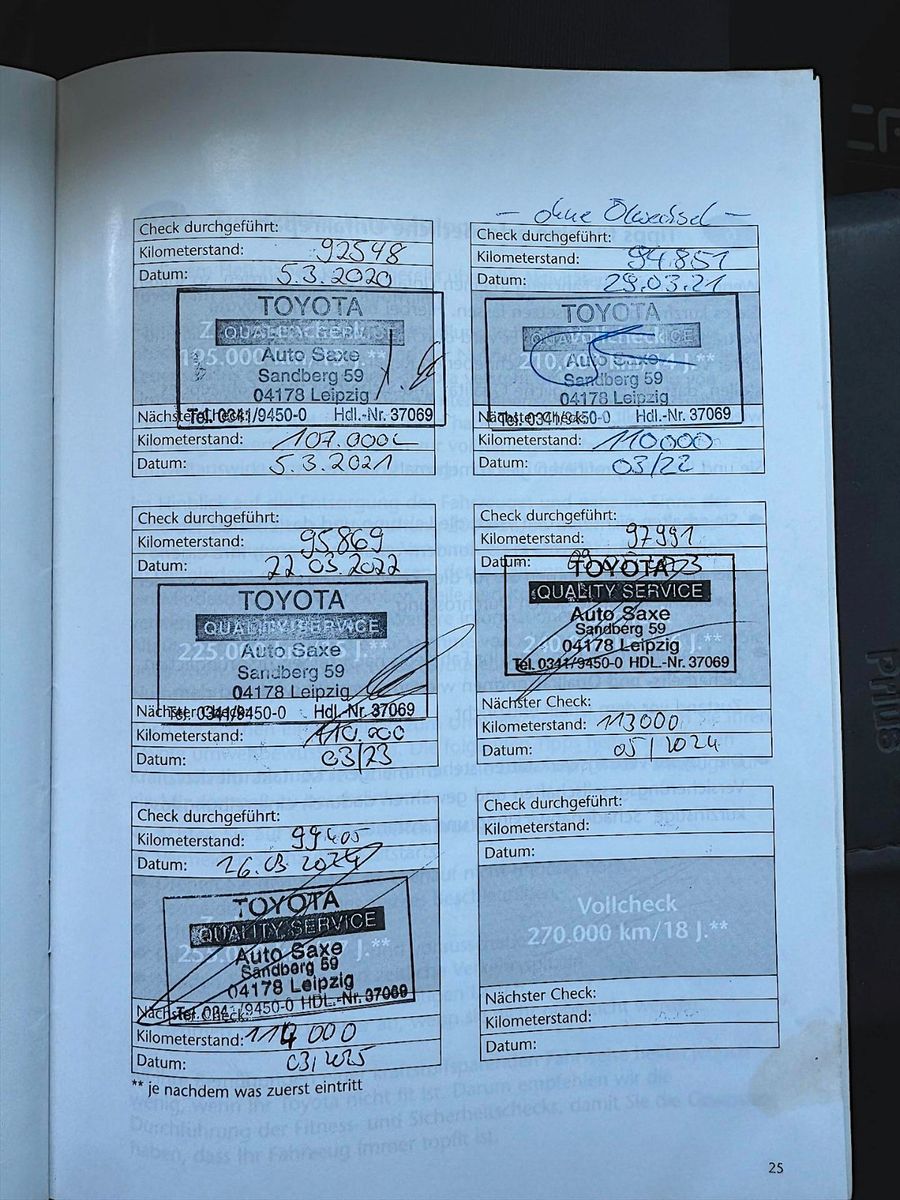 - ohne Ölwechsel -
Check durchgeführt:
Kilometerstand: 92548
Datum: 5.3.2020
TOYOTA
QUALITY SERVICE
195.000 J.**
Auto Saxe
Sandberg 59
04178 Leipzig
Tel. 0341/9450-0 Hdl.-Nr. 37069
Nächster Check:
Kilometerstand: 107.000
Datum: 5.3.2021
Check durchgeführt:
Kilometerstand: 94.851
Datum: 29.03.21
TOYOTA
QUALITY SERVICE
Vollcheck
210.000 J.**
Auto Saxe
Sandberg 59
04178 Leipzig
Tel. 0341/9450-0 Hdl.-Nr. 37069
Nächster Check:
Kilometerstand: 110000
Datum: 03/22
Check durchgeführt:
Kilometerstand: 95.869
Datum: 22.03.2022
TOYOTA
QUALITY SERVICE
Auto Saxe
225.000 J.**
Sandberg 59
04178 Leipzig
Tel. 0341/9450-0 Hdl.-Nr. 37069
Nächster Check:
Kilometerstand: 110.000
Datum: 03/23
Check durchgeführt:
Kilometerstand: 97991
Datum:
TOYOTA
QUALITY SERVICE
Auto Saxe
Sandberg 59
240 J.**
04178 Leipzig
Tel. 0341/9450-0 HDL.-Nr. 37069
Nächster Check:
Kilometerstand: 113000
Datum: 05/2024
Check durchgeführt:
Kilometerstand: 99.405
Datum: 26.03.2024
TOYOTA
QUALITY SERVICE
Auto Saxe
255 J.**
Sandberg 59
04178 Leipzig
Tel. 0341/9450-0 HDL.-Nr. 37069
Nächster Check:
Kilometerstand: 114000
Datum: 03/2025
Check durchgeführt:
Kilometerstand:
Datum:
Vollcheck
270.000 km/18 J.**
Nächster Check:
Kilometerstand:
Datum:
** je nachdem was zuerst eintritt
25
PRIUS